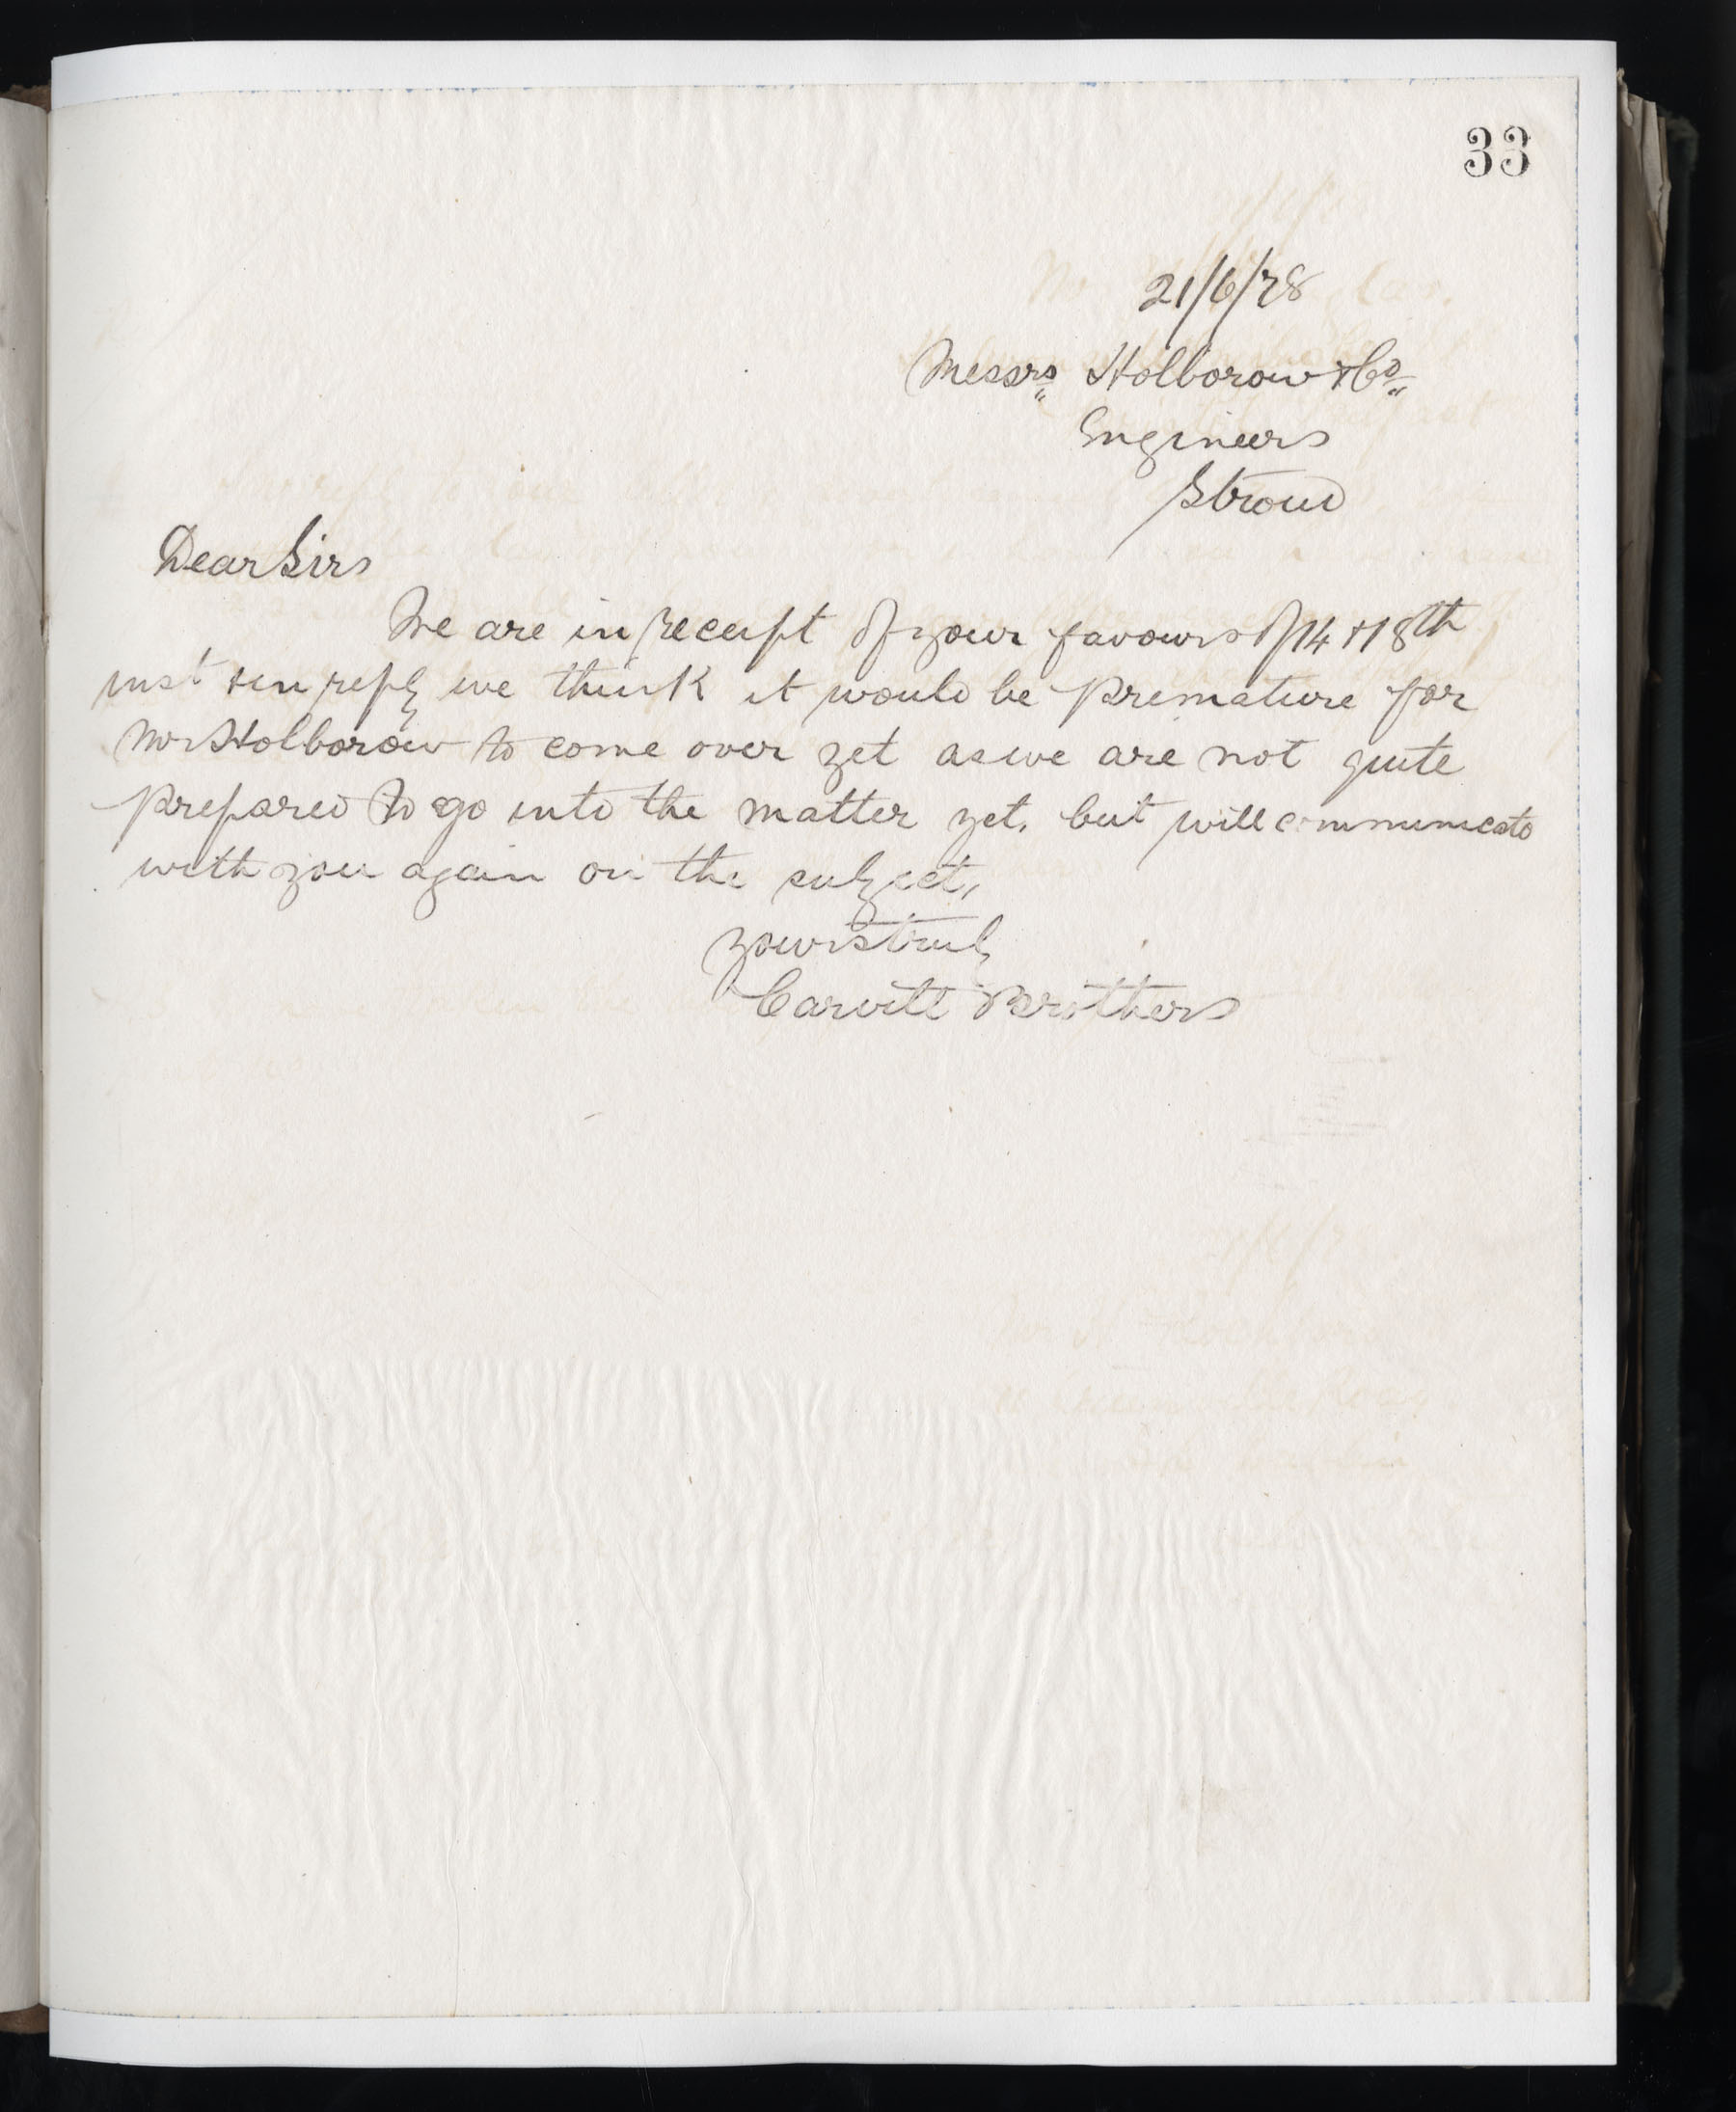 33
21/6/78
Messrs Holborow & Co
Engineers
Stroud
Dear Sirs
We are in receipt of your favours of 14 & 18th
inst & in reply we think it would be premature for
Mr Holborow to come over yet as we are not quite
prepared to go into the matter yet, but will communicate
with you again on the subject,
Yours truly
Carvill Brothers